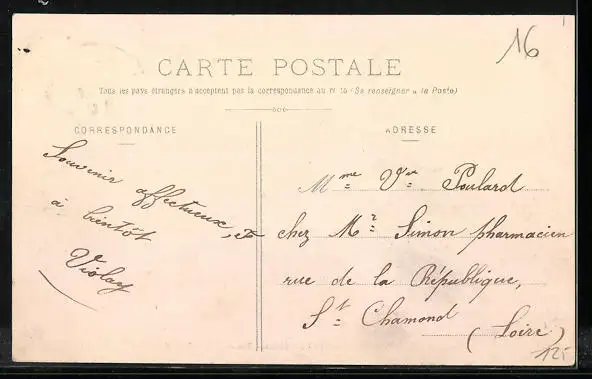 16
CARTE POSTALE
Tous les pays étrangers n'acceptent pas la correspondance au recto (Se renseigner à la Poste)
CORRESPONDANCE
ADRESSE
Souvenir affectueux, et
à bientôt
Violay
Mme Vve Poulard
chez Mr Simon pharmacien
rue de la République,
St Chamond
(Loire)
125